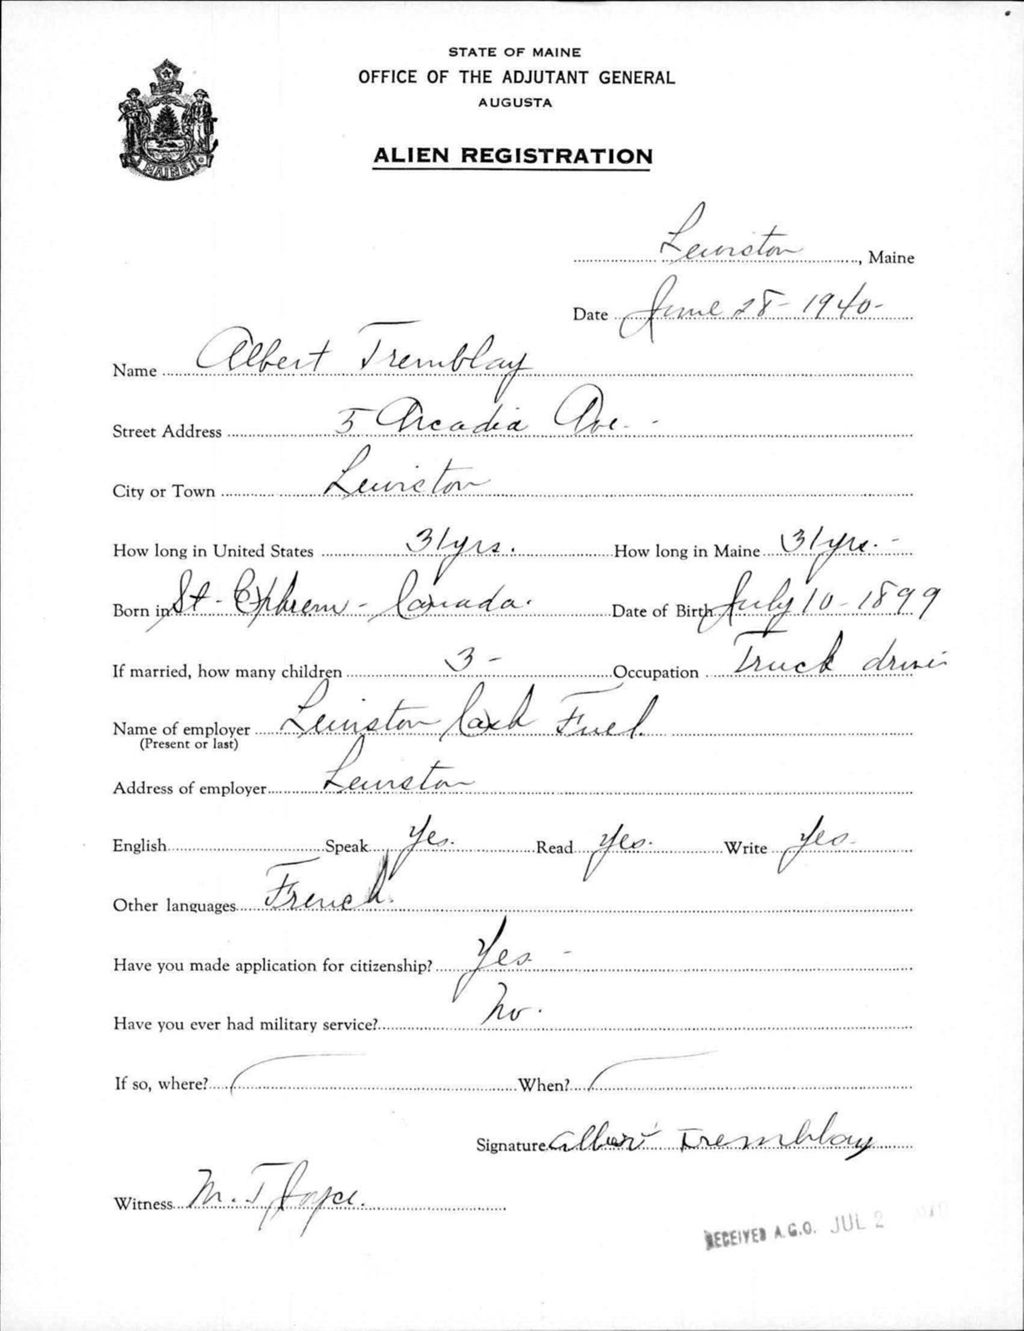 STATE OF MAINE
OFFICE OF THE ADJUTANT GENERAL
AUGUSTA
ALIEN REGISTRATION
MAINE
Lewiston, Maine
Date June 28 - 1940 -
Name Albert Tremblay
Street Address 5 Arcadia Ave. -
City or Town Lewiston
How long in United States 31 yrs. How long in Maine 31 yrs. -
Born in St - Ephrem - Canada. Date of Birth July 10 - 1899
If married, how many children 3 - Occupation Truck driver
Name of employer Lewiston Cash Fuel.
(Present or last)
Address of employer Lewiston
English Speak Yes. Read Yes. Write Yes.
Other languages French.
Have you made application for citizenship? Yes -
Have you ever had military service? No.
If so, where? When?
Signature Albert Tremblay
Witness M. T. Joyce.
RECEIVED A.G.O. JUL 2